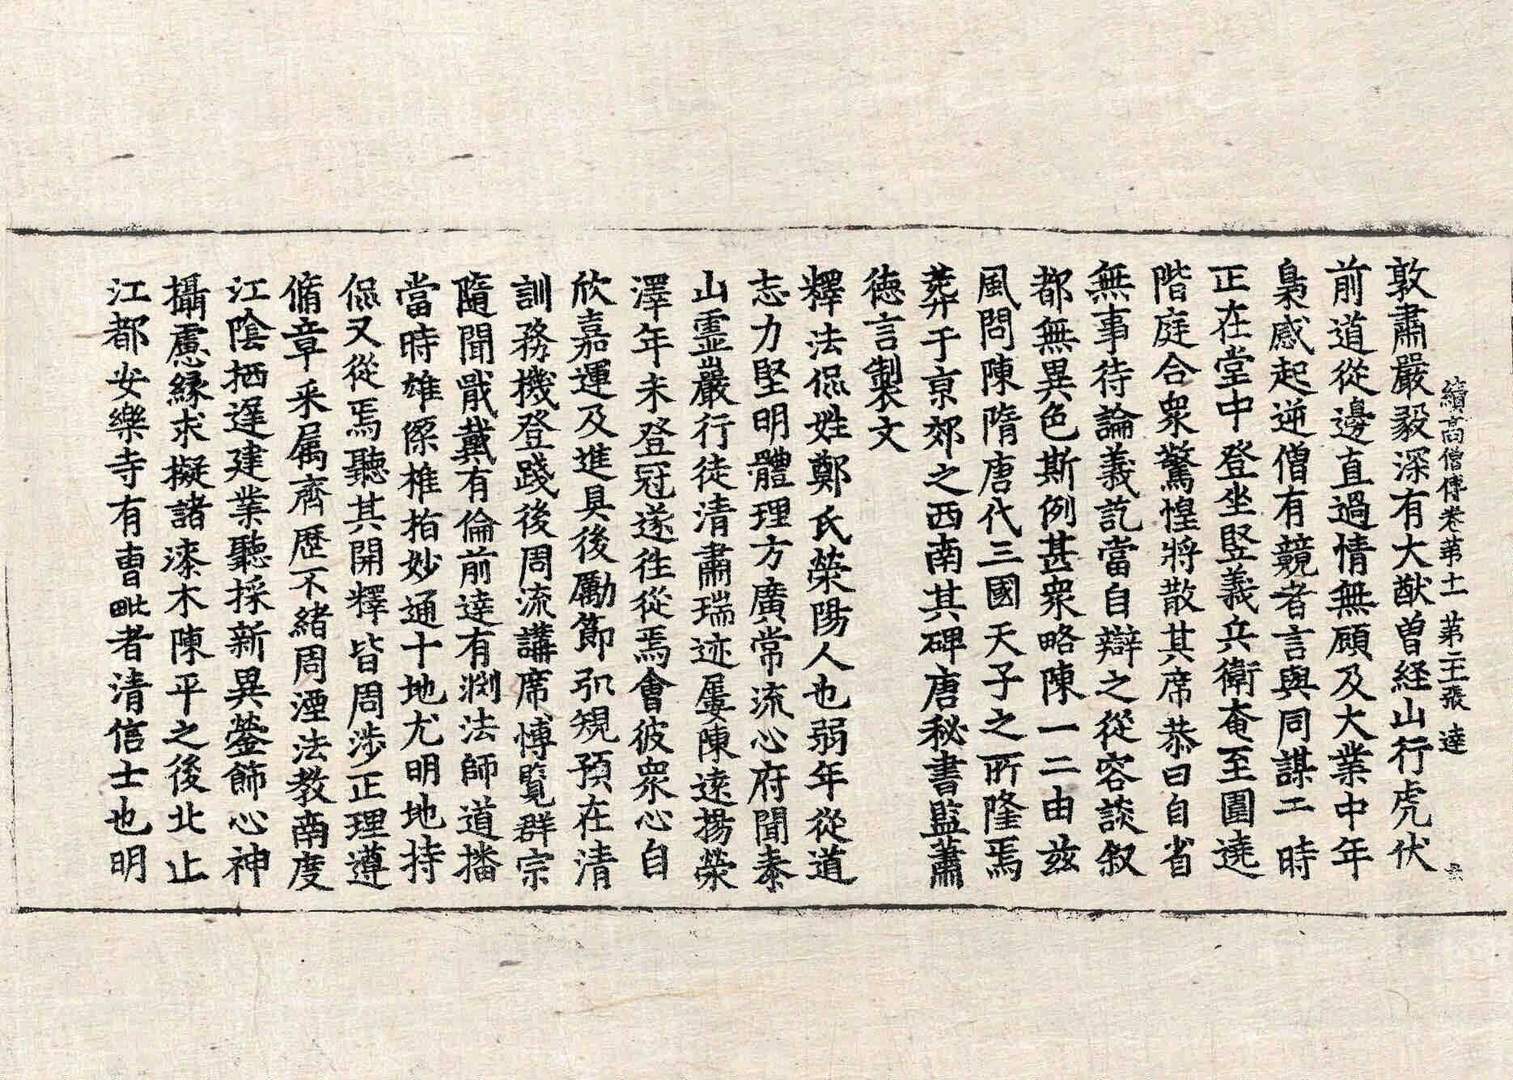 續高僧傳卷第十一 第二十三張 達
敦肅嚴毅深有大猷曽経山行虎伏
前道從邊直過情無顧及大業中年
梟感起逆僧有競者言與同謀二時
正在堂中登坐竪義兵衛奄至圍遶
階庭合衆驚惶將散其席恭曰自省
無事待論義訖當自辯之從容談叙
都無異色斯例甚衆略陳一二由玆
風問陳隋唐代三國天子之所隆焉
葬于京郊之西南其碑唐秘書監蕭
徳言製文
釋法侃姓鄭氏榮陽人也弱年從道
志力堅明體理方廣常流心府聞泰
山靈巖行徒清肅瑞迹屢陳遠揚榮
澤年未登冠遂往從焉會彼衆心自
欣嘉運及進具後勵節弘規預在清
訓務機登踐後周流講席博覧群宗
隨聞戢戴有倫前達有渕法師道播
當時雄傑推拍妙通十地尤明地持
侃又從焉聽其開釋皆周涉正理遵
脩章采属齊歷不緒周湮法教南度
江陰栖遅建業聽採新異鎣飾心神
攝慮緣求擬諸漆木陳平之後北止
江都安樂寺有曹毗者清信士也明